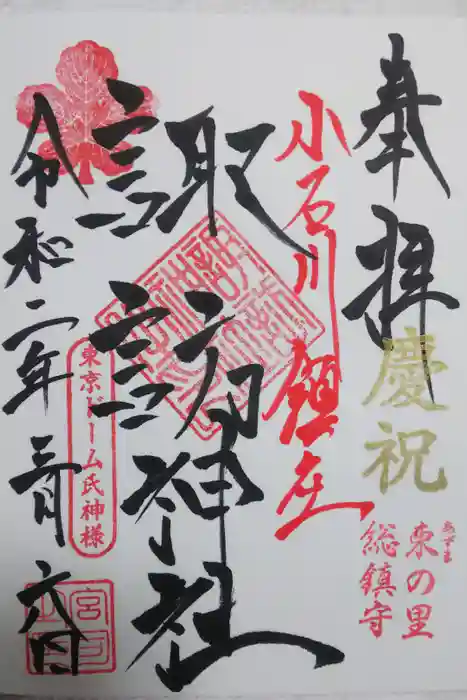 奉拝
慶祝
あづま
東の里
総鎮守
小石川鎮座
諏訪神社
東京ドーム氏神様
令和二年三月六日
宮司之印